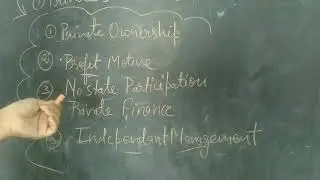 ① Private Ownership
② Profit Motive
③ No state Participation
Private Finance
⑤ Independant Management